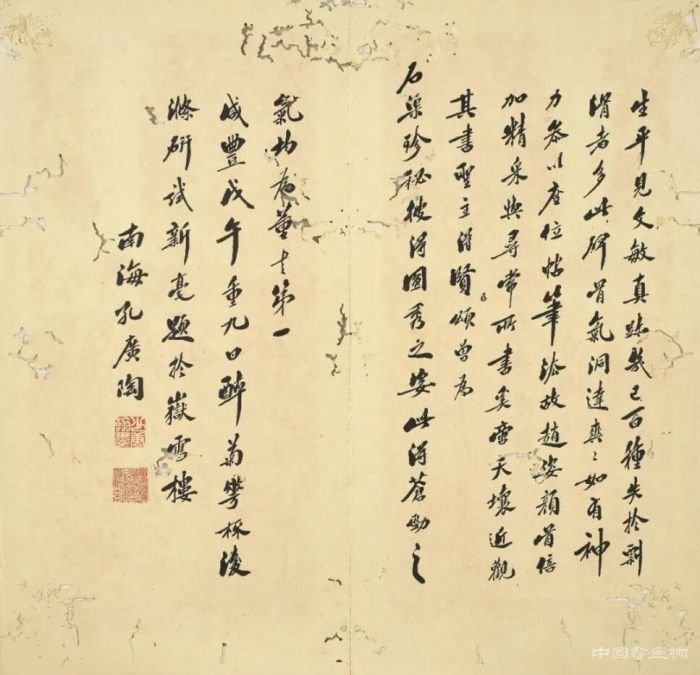 生平見文敏真跡幾已百種失於剽
滑者多此碑骨氣洞達爽〻如有神
力參以座位帖筆法故趙姿顏骨倍
加精采與尋常所書奚啻天壤近觀
其書聖主得賢頌曾為
石渠珍秘彼得圓秀之姿此得蒼勁之
氣均為董書第一
咸豐戊午重九日醉菊杯後
滌研試新毫題於嶽雪樓
南海孔廣陶
中国書画網